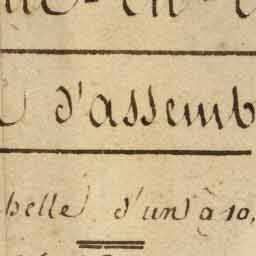 d'assemb
helle d'un à 10.